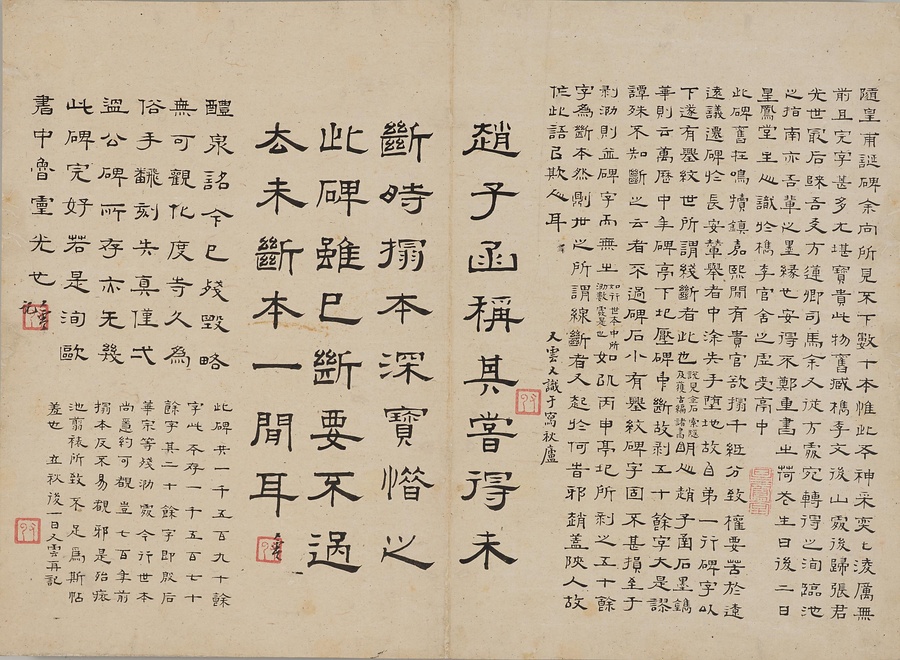 隨皇甫誕碑余向所見不下數十本惟此本神采奕〻淩厲無
前且完字甚多尤堪寶貴此物舊藏檇李文後山處後歸張君
光世最后歸吾友方蓮卿司馬余又從方處宛轉得之洵臨池
之指南亦吾輩之墨緣也安得不鄭重書之荷花生日後二日
星鳳堂主人識於檇李官舍之虛受亭中
此碑舊在鳴犢鎮嘉熙間有貴官欲搨千紙分致權要苦於遠
遠議還碑於長安輦舉者中涂失手墮地故自弟一行碑字以
下遂有璺紋世所謂綫斷者此也明人趙子函石墨鐫
華則云萬歷中年碑亭下圮壓碑中斷故剥五十餘字大是謬
譚殊不知斷之云者不過碑石小有璺紋碑字固不甚損至于
剥泐則並碑字而無之如行世本中所泐數處是也如以丙申亭圮所剥之五十餘
字為斷本然則世之所謂線斷者又起於何昔邪趙蓋陝人故
作此語㠯欺人耳
又雲又識于寫秋廬
趙子函稱其嘗得未
斷時搨本深寶惜之
此碑雖已斷要不過
去未斷本一閒耳
醴泉銘今已殘毀略
無可觀化度寺久為
俗手翻刻失真僅弌
溫公碑所存亦无幾
此碑完好若是洵歐
書中魯靈光也
又雲
記
此碑共一千五百九十餘
字此本存一千五百七十
餘字其二十餘字即殿后
華宗等殘泐處今行世本
尚蓋約可覩豈七百年前
搨本反不易覩邪是殆裱
池翦裱所致不足為斯帖
羞也 立秋後一日又雲再記